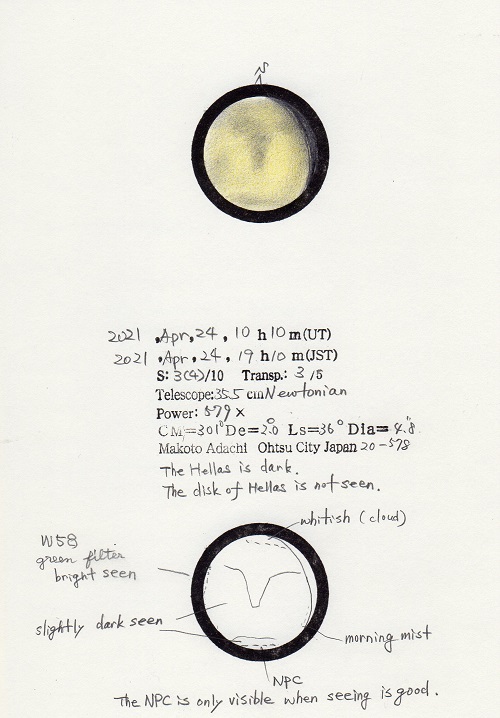 N
2021 , Apr, 24 , 10 h 10 m (UT)
2021 , Apr, 24 , 19 h 10 m (JST)
S: 3(4)/10 Transp.: 3 /5
Telescope: 35.5 cm Newtonian
Power: 579 ×
CM=301° De=2.0° Ls=36° Dia=4.8"
Makoto Adachi Ohtsu City Japan 20-578
The Hellas is dark.
The disk of Hellas is not seen.
whitish (cloud)
W58
green filter
bright seen
slightly dark seen
morning mist
NPC
The NPC is only visible when seeing is good.